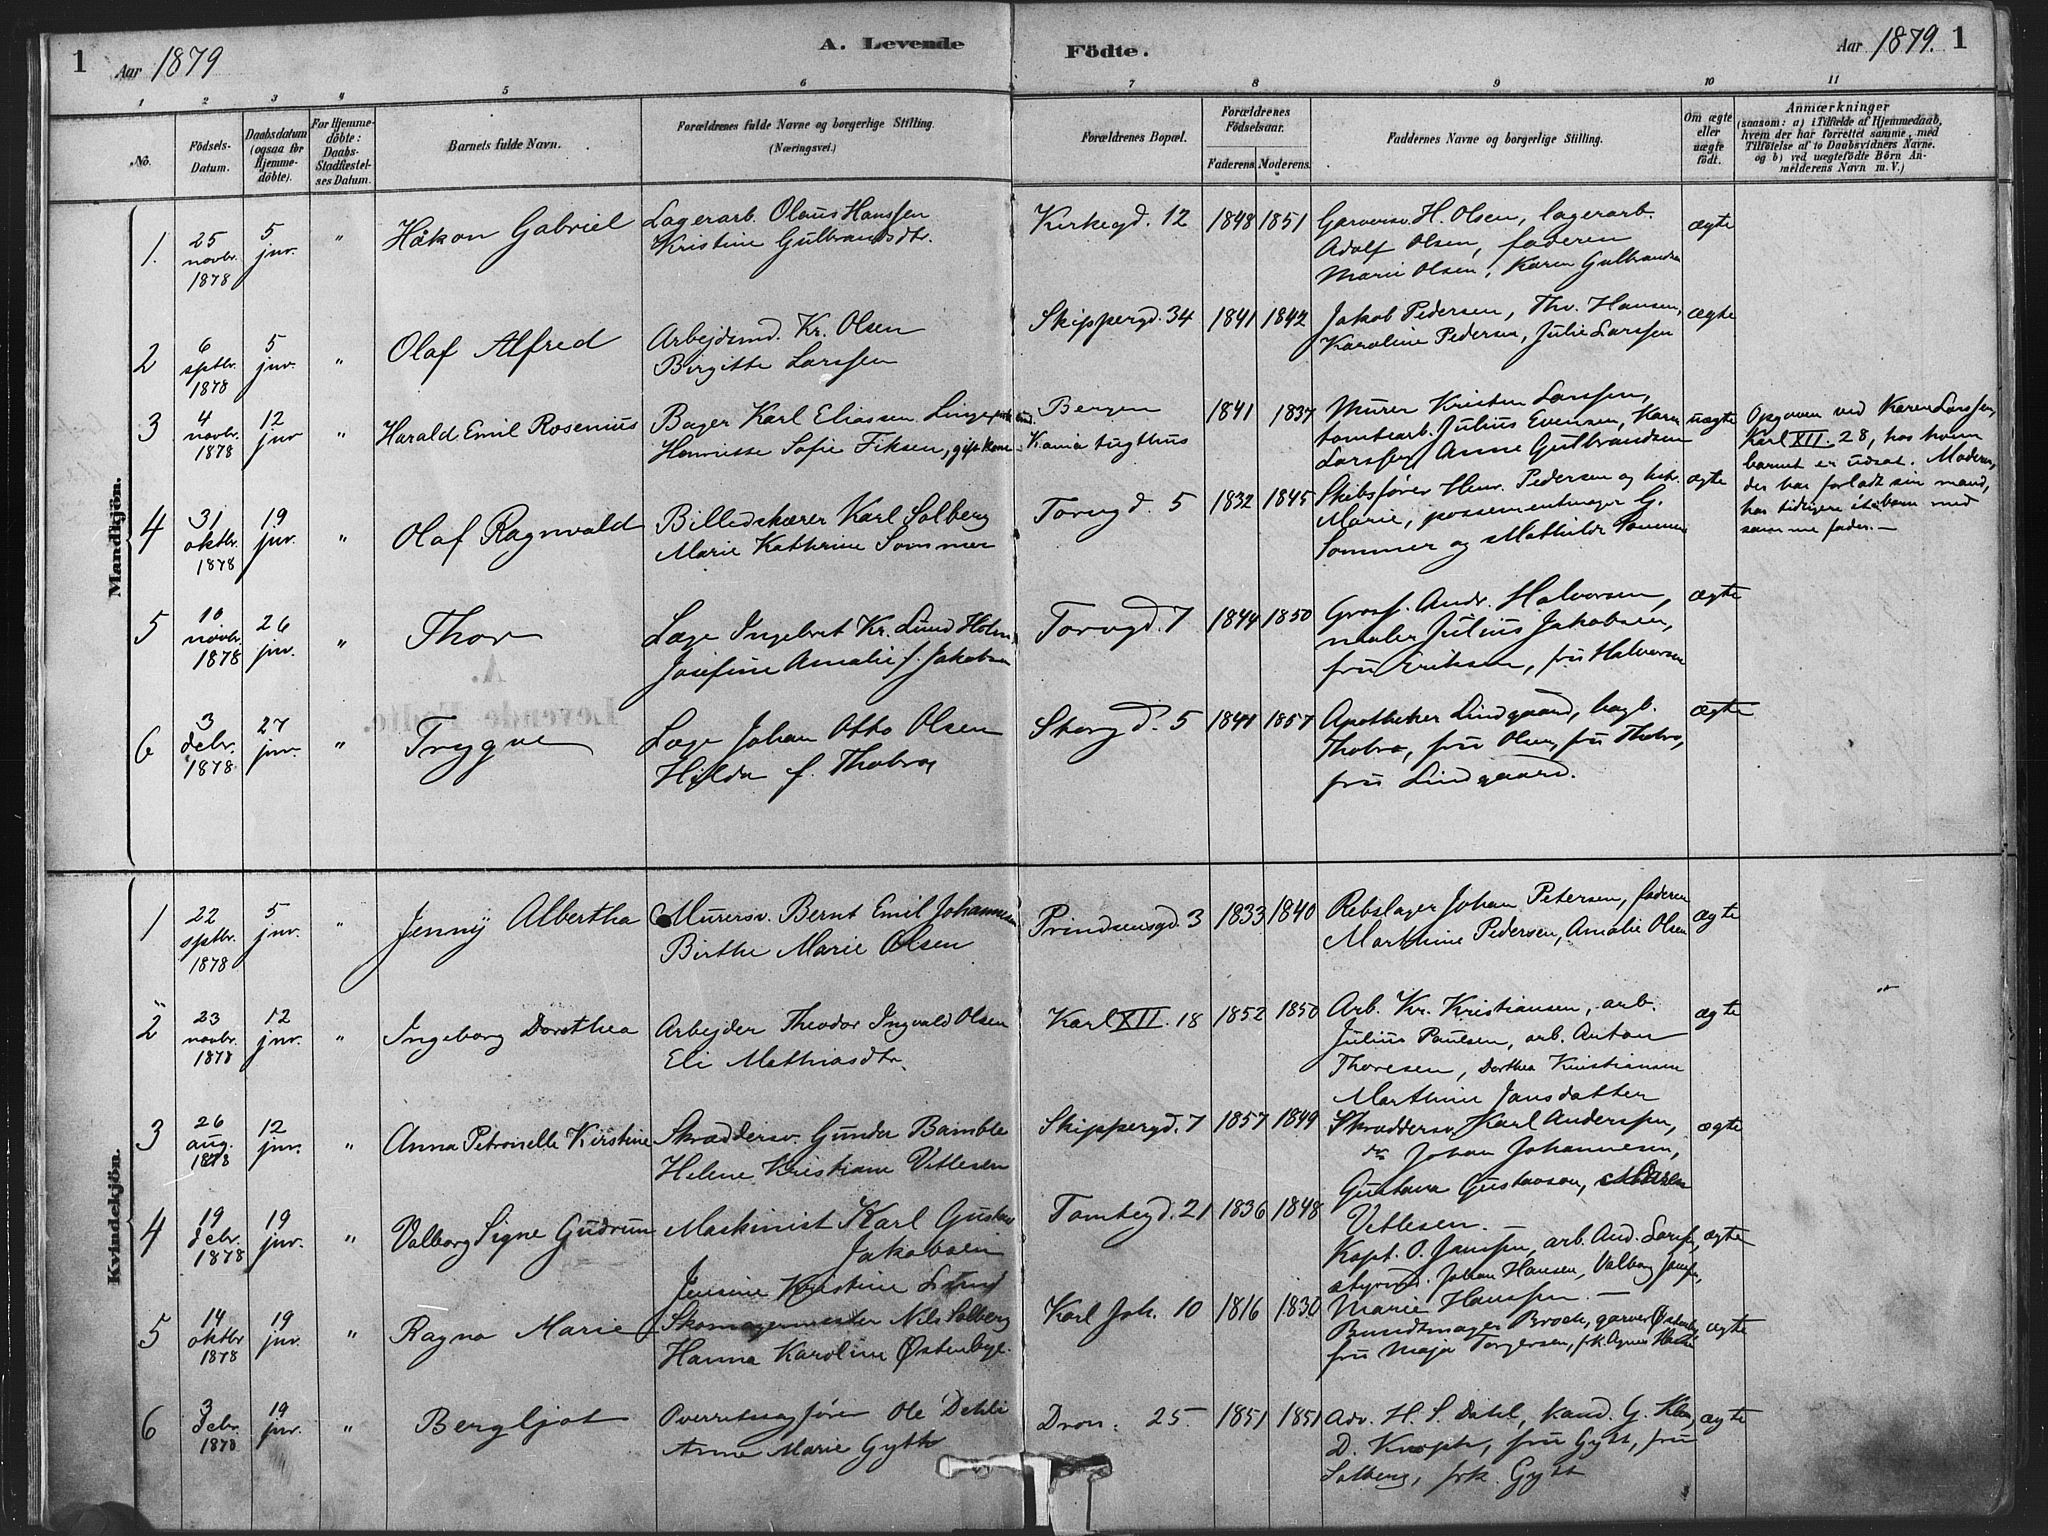 1 Aar 1879 A. Levende Födte. Aar 1879. 1
1 2 3 4 5 6 7 8 9 10 11
No. Födsels-Datum. Daabsdatum (ogsaa for Hjemmedöbte). For Hjemmedöbte: Daabs-Stadfæstelses Datum. Barnets fulde Navn. Forældrenes fulde Navne og borgerlige Stilling. (Næringsvei.) Forældrenes Bopæl. Forældrenes Födselsaar. Faderens Moderens. Faddernes Navne og borgerlige Stilling. Om ægte eller uægte födt. Anmærkninger (saasom: a) i Tilfælde af Hjemmedaab, hvem der har forrettet samme, med Tilföielse af to Daabsvidners Navne. og b) ved uægtefödte Börn Anmelderens Navn m. V.)
Mandkjön.
1. 25 novbr. 1878 5 jnr. " Håkon Gabriel Lagerarb. Olaus Hanssen Kirkegd. 12 1848 1851 Garversv. H. Olsen, lagerarb. ægte
Kristine Gulbrandsdtr. Adolf Olsen, faderen
Marie Olsen, Karen Gulbrandsen
2 6 sptbr. 1878 5 jnr. " Olaf Alfred Arbejdsmd. Kr. Olsen Skippergd. 34 1841 1842 Jakob Pedersen, Thv. Hansen, ægte
Birgitte Larssen Karoline Pedersen, Julie Larssen
3 4 novbr. 1878 12 jnr " Harald Emil Rosenius Bager Karl Eliassen Linge Bergen 1841 1837 Murer Kristen Larssen, uægte Opgoven ved Karen Larssen,
Henriette Sofie Eiksen, gift kone Kania tugthus tomtearb. Julius Evensen, Karen Karl XII. 28, hos hvem
Larssen, Anne Gulbrandsen barnet er udsat. Moderen,
4 31 oktbr. 1878 19 jnr. " Olaf Ragnvald Billedskærer Karl Solberg Torvgd. 5 1832 1845 Skibsfører Henr. Pedersen og ægte der har forladt sin mand,
Marie Kathrine Sommer Marie, possementmager G. har tidligere et barn med
Sommer og Mathilde Sommer samme fader.—
5 10 novbr. 1878 26 jnr. " Thor Læge Ingebret Kr. Lund Holm Torvgd. 7 1844 1850 Gross. Andr. Halvorsen, ægte
Josefine Amalie f. Jakobsen maler Julius Jakobsen,
fru Eriksen, fru Halvorsen
6 3 debr. 1878 27 jnr. " Trygve Læge Johan Otto Olsen Storgd. 5 1841 1857 Apotheker Lindgaard, bogb. ægte
Hilda f. Thobro Thobro, fru Olsen, fru Thobro,
fru Lindgaard.
Kvindekjön.
1 22 sptbr. 1878 5 jnr. " Jenny Albertha Murersv. Bernt Emil Johannesen Prindsensgd. 3 1833 1840 Rebslager Johan Petersen, faderen ægte
Birthe Marie Olsen Marthine Pedersen, Amalie Olsen
2 23 novbr. 1878 12 jnr. " Ingeborg Dorothea Arbejder Theodor Ingvald Olsen Karl XII. 18 1852 1850 Arb. Kr. Kristiansen, arb. ægte "
Eli Mathiasdtr. Julius Paulsen, arb. Anton
Thoresen, Dorthea Kristiansen
Marthine Jansdatter
3 26 aug. 1878 12 jnr. " Anna Petronelle Kirstine Skræddersv. Gunder Bamble Skippergd. 7 1857 1849 Skræddersv. Karl Anderssen, ægte
Helene Kristiane Vetlesen do Johan Johannesen,
Gustava Gustavson, Maren
Vetlesen.—
4 19 debr. 1878 19 jnr. " Valborg Signe Gudrun Maskinist Karl Gustav Tomtegd. 21 1836 1848 Kapt. O. Janssen, arb. And. Larssen, ægte
Jakobsen styrmd. Johan Hansen, Valborg Janssen,
Jensine Kristine Lund Marie Hanssen.—
5 14 oktbr 1878 19 jnr. " Ragna Marie Skomagermester Nils Solberg Karl Joh. 10 1816 1830 Bundtmager Brock, garver Østenbye ægte
Hanna Karoline Østenbye. fru Maja Torgersen, frk. Agnes
6 3 debr. 1878 19 jnr. " Bergljot Overretssagfører Ole Dehli Dron. 25. 1851 1851 Adv. H. S. Dahl, kand. G. ægte
Anne Marie Gytt D. Knoph, fru Gytt, fru
Solberg, frk. Gytt